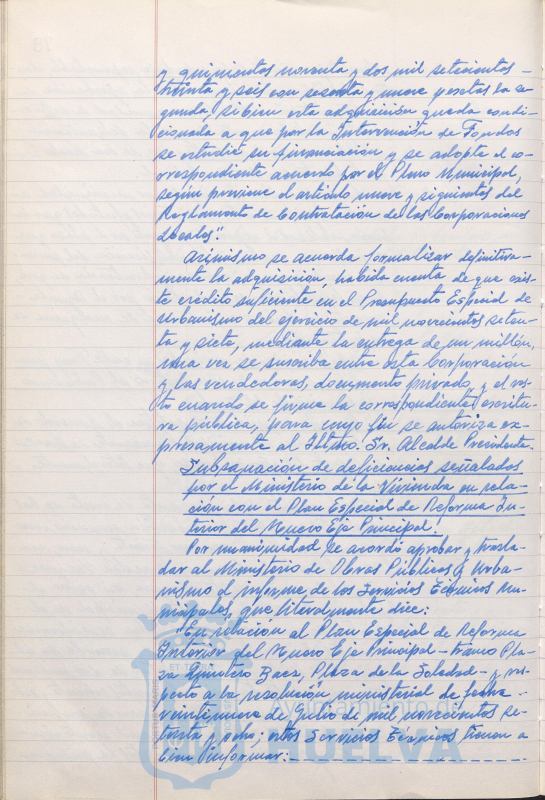 y quinientos noventa y dos mil setecientos
treinta y seis con sesenta y nueve pesetas la se
gunda, si bien esta adquisición queda condi-
cionada a que por la Intervención de Fondos
se estudie su financiación y se adopte el co-
rrespondiente acuerdo por el Pleno Municipal,
según previene el artículo nueve y siguientes del
Reglamento de Contratación de las Corporaciones
Locales".
Asimismo se acuerda formalizar definitiva-
mente la adquisición, habida cuenta de que exis-
te crédito suficiente en el Presupuesto Especial de
Urbanismo del ejercicio de mil novecientos seten-
ta y siete, mediante la entrega de un millón,
una vez se suscriba entre esta Corporación
y las vendedoras, documento privado, y el res-
to cuando se firme la correspondiente escritu-
ra pública, para cuyo fin se autoriza ex-
presamente al Iltmo. Sr. Alcalde Presidente.
Subsanación de deficiencias señaladas
por el Ministerio de la Vivienda en rela-
ción con el Plan Especial de Reforma In-
terior del Nuevo Eje Principal.
Por unanimidad se acordó aprobar y trasla-
dar al Ministerio de Obras Públicas y Urba-
nismo el informe de los Servicios Técnicos Mu-
nicipales, que literalmente dice:
"En relación al Plan Especial de Reforma
Interior del Nuevo Eje Principal - tramo Pla-
za Quintero Baez, Plaza de la Soledad - y res-
pecto a la resolución ministerial de fecha
veintinueve de Julio de mil novecientos se-
tenta y ocho; estos Servicios Técnicos tienen a
bien informar:
Ayuntamiento de
HUELVA